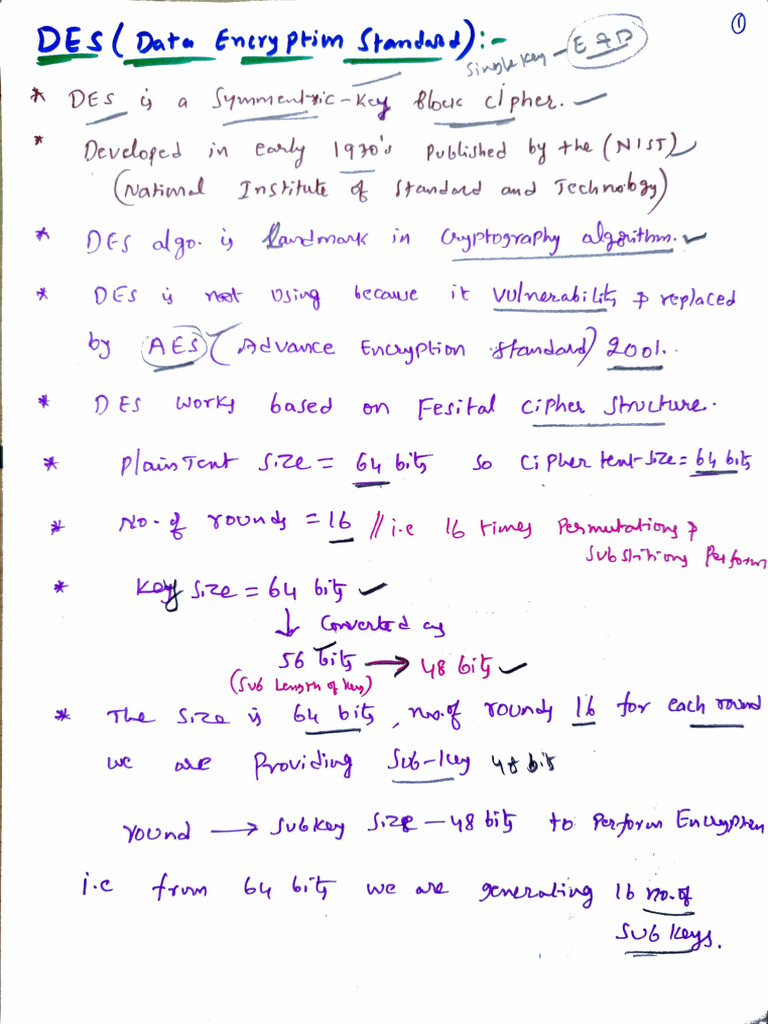 ①
DES (Data Encryptim Standard):-
Single key - E & D
* DES is a Symmentric-Key Block Cipher.
* Developed in early 1970's Published by the (NIST)
(National Institute of Standard and Technology)
* DES algo. is Landmark in Cryptography algorithm.
* DES is not using because it vulnerability & replaced
by AES (Advance Encryption Standard) 2001.
* DES works based on Fesital Cipher Structure.
* Plain Tent Size = 64 bits so Cipher tent-size = 64 bits
* No. of rounds = 16 // i.e 16 times Permutations &
Substitions Perform
* Key Size = 64 bits
↓ Converted as
56 bits → 48 bits
(Sub Length of key)
* The Size is 64 bits, no. of rounds 16 for each round
we are Providing Sub-key 48 bit
round → Subkey Size - 48 bits to Perform Encryption
i.e from 64 bits we are generating 16 no. of
Sub keys.